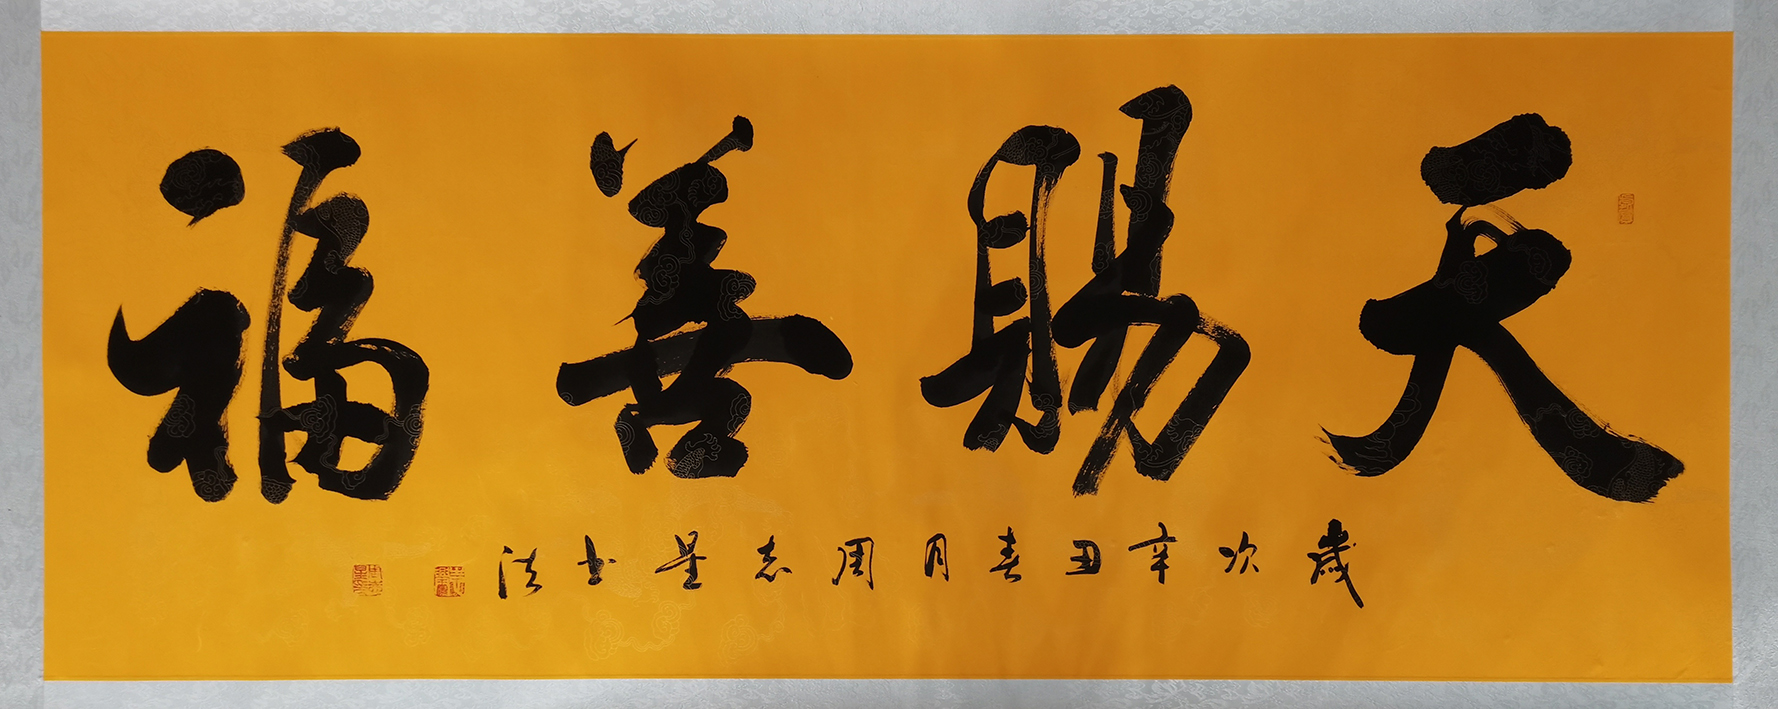 天賜善福
歲次辛丑春月周志星书法